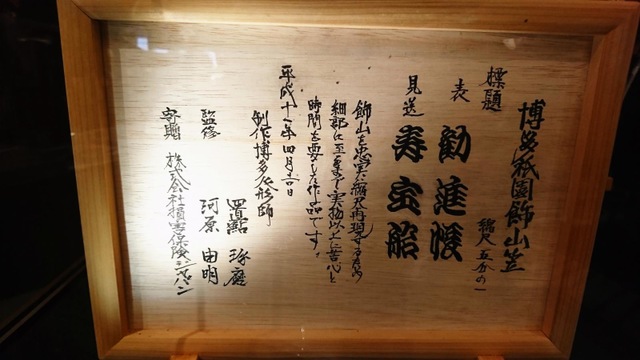 博多祇園飾山笠
縮尺 五分の一
標題
表 勧進帳
見送 寿宝船
飾山を忠実に縮尺再現するため
細部に至るまで実物以上に苦心と
時間を要した作品です。
平成十二年四月吉日
制作博多人形師
置鮎 琢磨
監修 河原 由明
寄贈 株式会社損害保険ジャパン